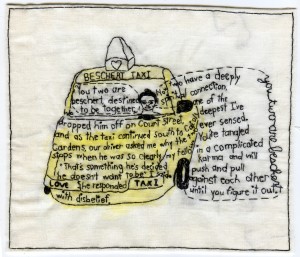 BESCHERT TAXI
You two are
beschert, destined
to be together,
You have a deeply
connection,
one of the
deepest I've
ever sensed.
You're tangled
in a complicated
karma and will
push and pull
against each other
until you figure it out.
you two are beschert
dropped him off on Court Street
and as the taxi continued south to
Gardens, our driver asked me why the
stops when he was so clearly my
"That's something he's decided
he doesn't want to be" I said
LOVE She responded TAXI
with disbelief.